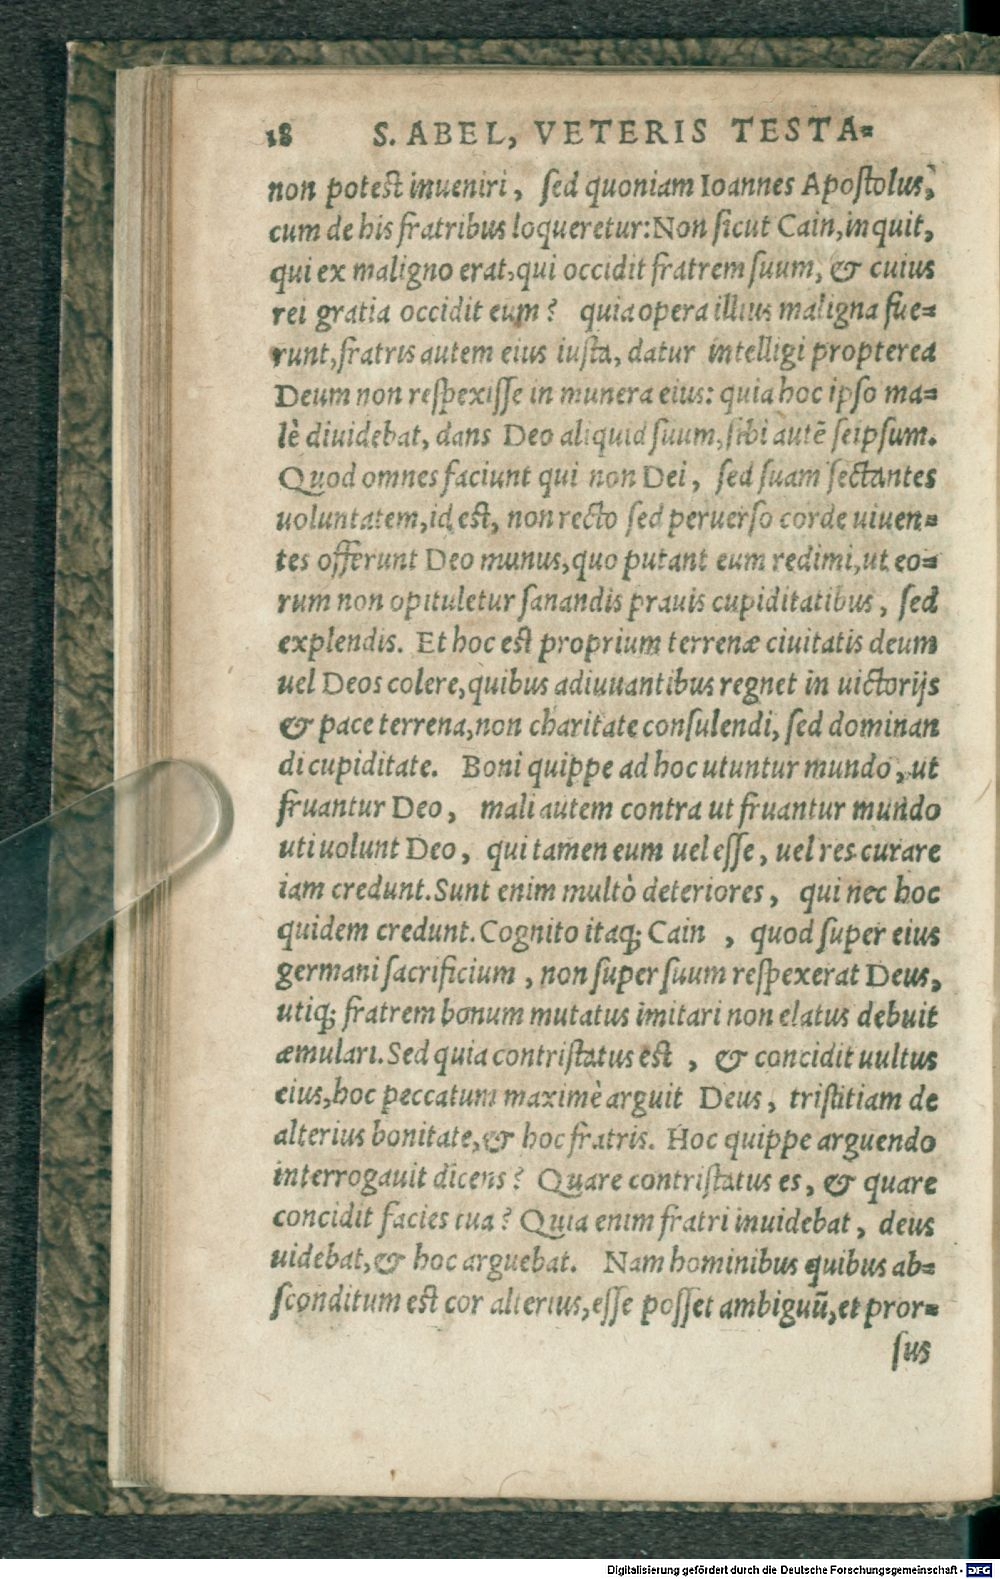 18 S. ABEL, VETERIS TESTA=
non potest inueniri, sed quoniam Ioannes Apostolus,
cum de his fratribus loqueretur: Non sicut Cain, inquit,
qui ex maligno erat, qui occidit fratrem suum, & cuius
rei gratia occidit eum? quia opera illius maligna fue=
runt, fratris autem eius iusta, datur intelligi propterea
Deum non respexisse in munera eius: quia hoc ipso ma=
lè diuidebat, dans Deo aliquid suum, sibi autē seipsum.
Quod omnes faciunt qui non Dei, sed suam sectantes
uoluntatem, id est, non recto sed peruerso corde uiuen=
tes offerunt Deo munus, quo putant eum redimi, ut eo=
rum non opituletur sanandis prauis cupiditatibus, sed
explendis. Et hoc est proprium terrenæ ciuitatis deum
uel Deos colere, quibus adiuuantibus regnet in uictorijs
& pace terrena, non charitate consulendi, sed dominan
di cupiditate. Boni quippe ad hoc utuntur mundo, ut
fruantur Deo, mali autem contra ut fruantur mundo
uti uolunt Deo, qui tamen eum uel esse, uel res curare
iam credunt. Sunt enim multò deteriores, qui nec hoc
quidem credunt. Cognito itaq; Cain, quod super eius
germani sacrificium, non super suum respexerat Deus,
utiq; fratrem bonum mutatus imitari non elatus debuit
æmulari. Sed quia contristatus est, & concidit uultus
eius, hoc peccatum maximè arguit Deus, tristitiam de
alterius bonitate, & hoc fratris. Hoc quippe arguendo
interrogauit dicens? Quare contristatus es, & quare
concidit facies tua? Quia enim fratri inuidebat, deus
uidebat, & hoc arguebat. Nam hominibus quibus ab=
sconditum est cor alterius, esse posset ambiguū, et pror=
sus
Digitalisierung gefördert durch die Deutsche Forschungsgemeinschaft - DFG